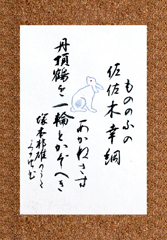 もののふの
佐佐木幸綱
あかねさす
丹頂鶴を一輪とかぞへき
塚本邦雄のうた